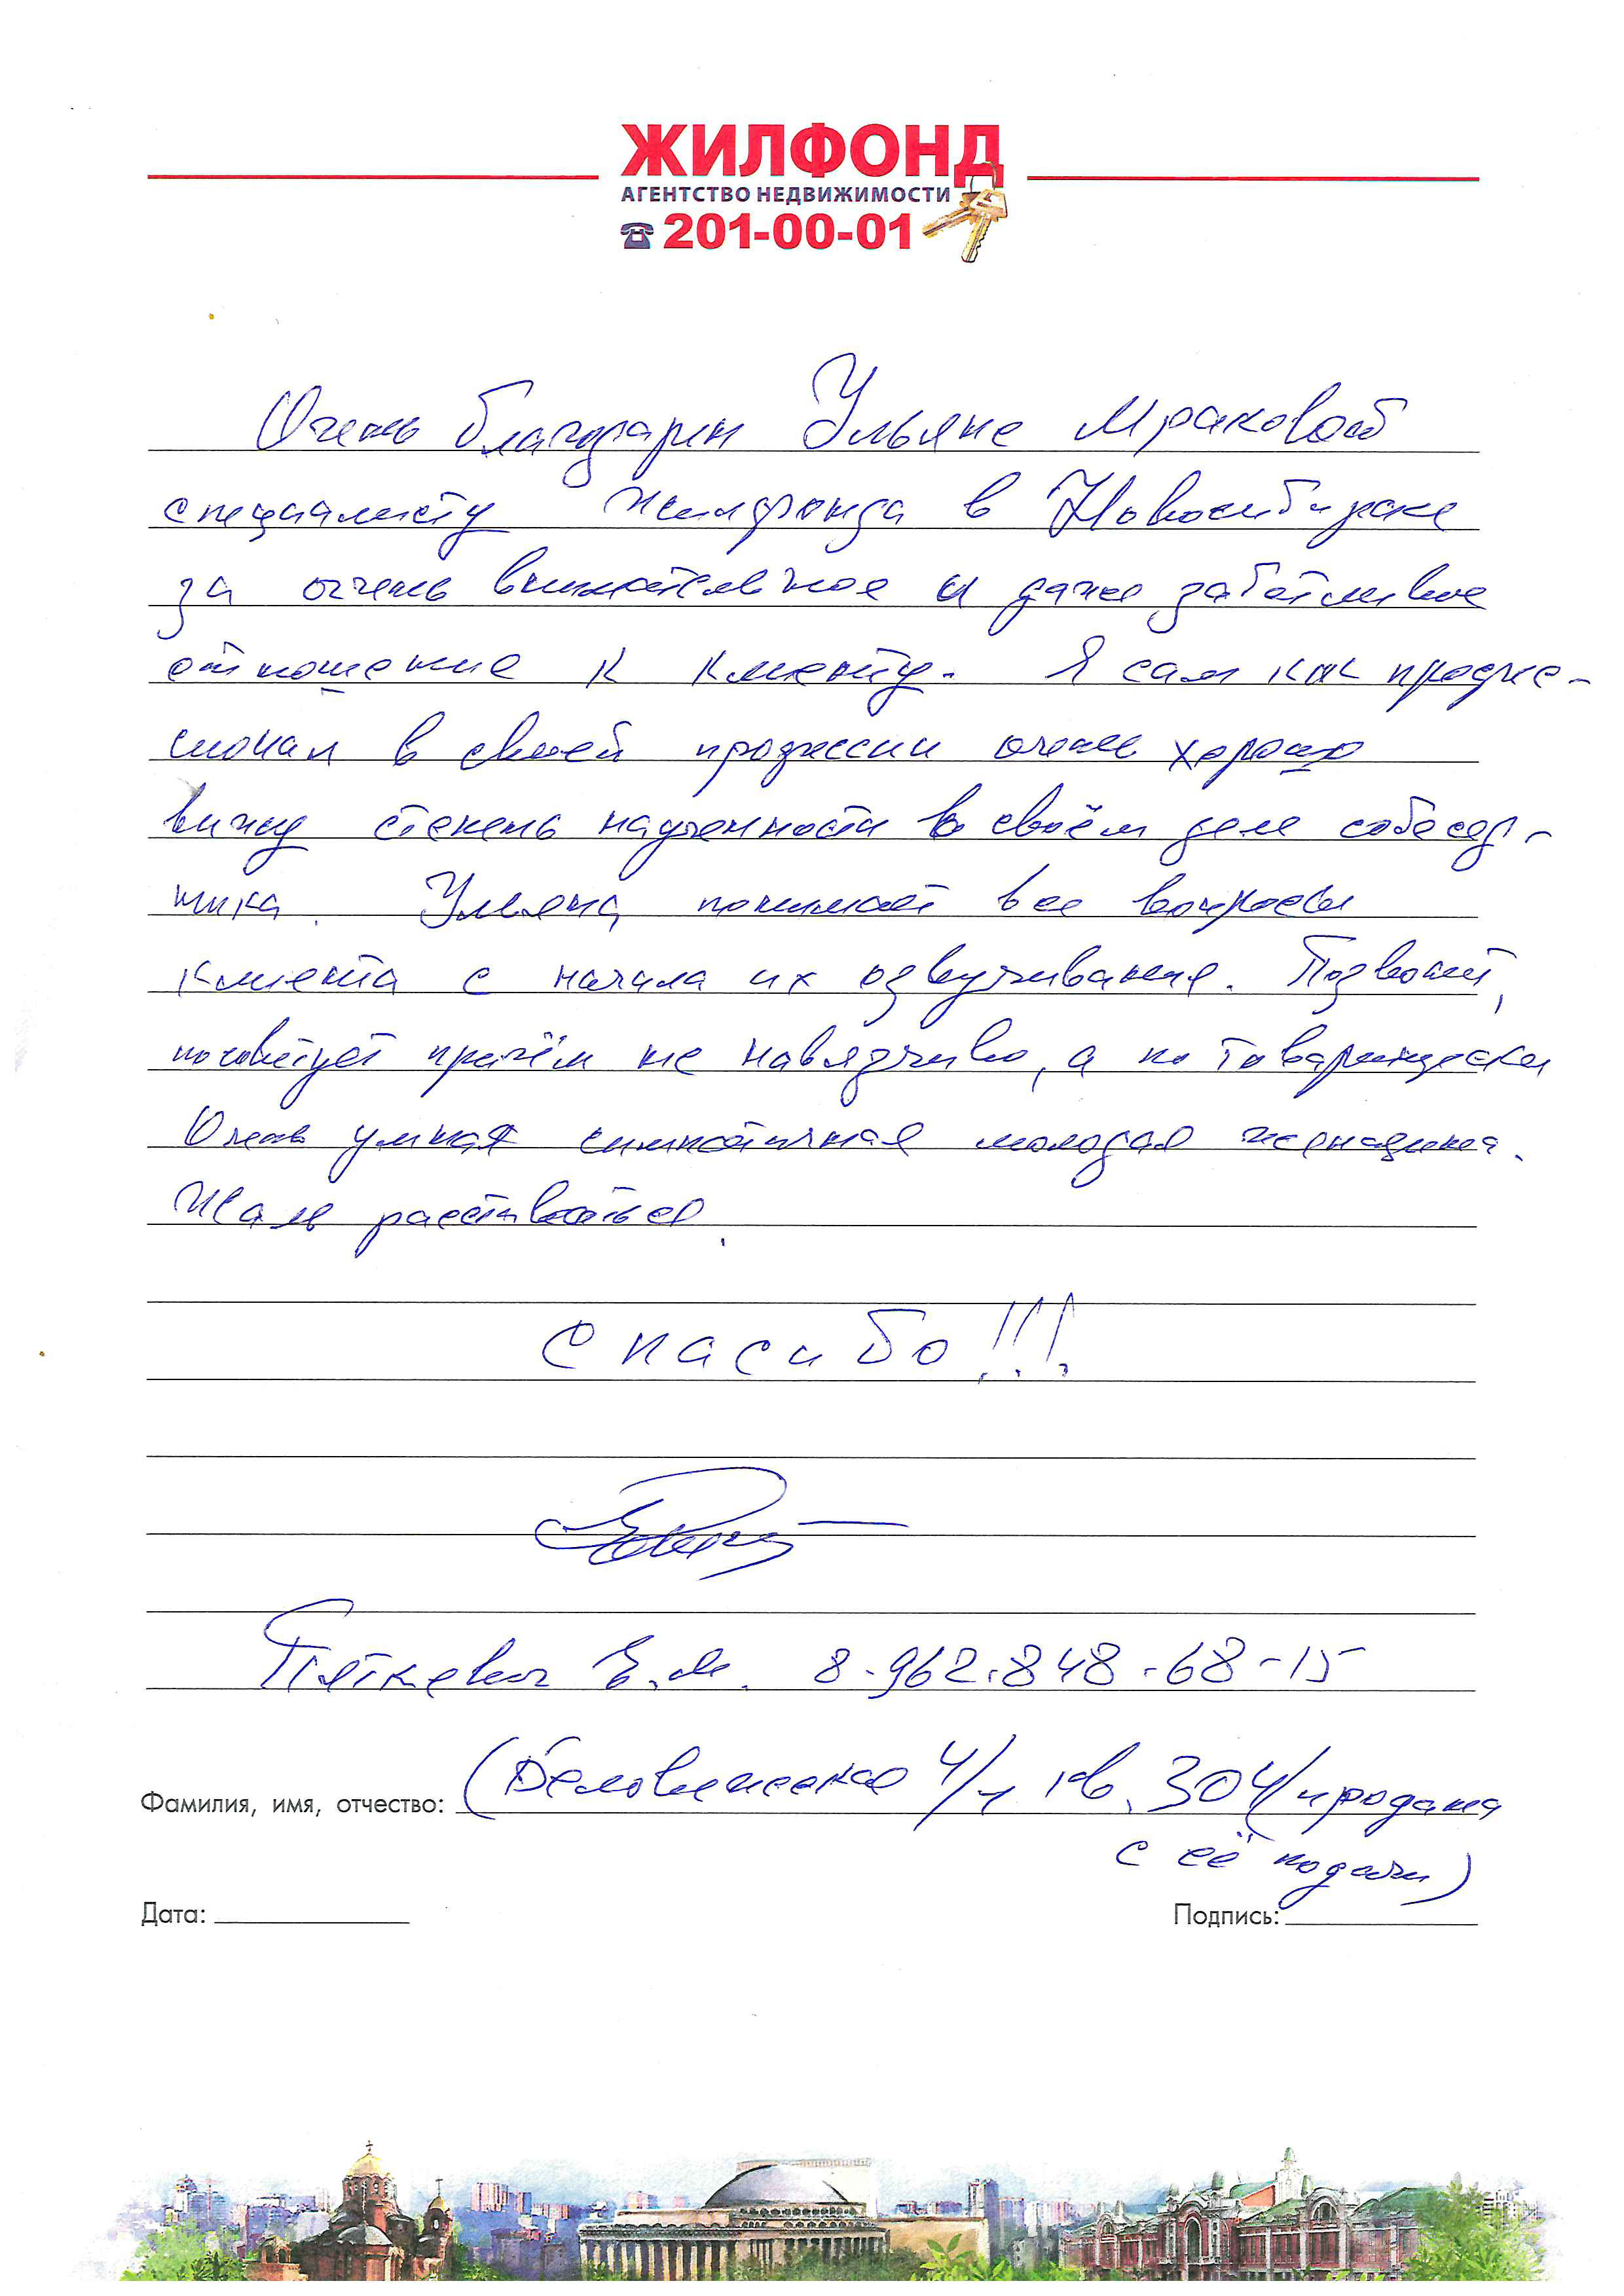 ЖИЛФОНД
АГЕНТСТВО НЕДВИЖИМОСТИ
201-00-01
Очень благодарен Ульяне Мраковой
специалисту Жилфонда в Новосибирске
за очень внимательное и даже заботливое
отношение к клиенту. Я сам как профес-
сионал в своей профессии очень хорошо
вижу степень наученности в своём деле собесед-
ника. Ульяна понимает все вопросы
клиента с начала их озвучивания. Позвонит,
посоветует причём не навязчиво, а по товарищески
Очень умная симпатичная молодая женщина.
Жаль расставаться.
Спасибо!!!
Пяткевич Е.М. 8-962-848-68-15
Фамилия, имя, отчество: (Беловежская 4/1 кв. 304/продана
с её подачи)
Дата:
Подпись: